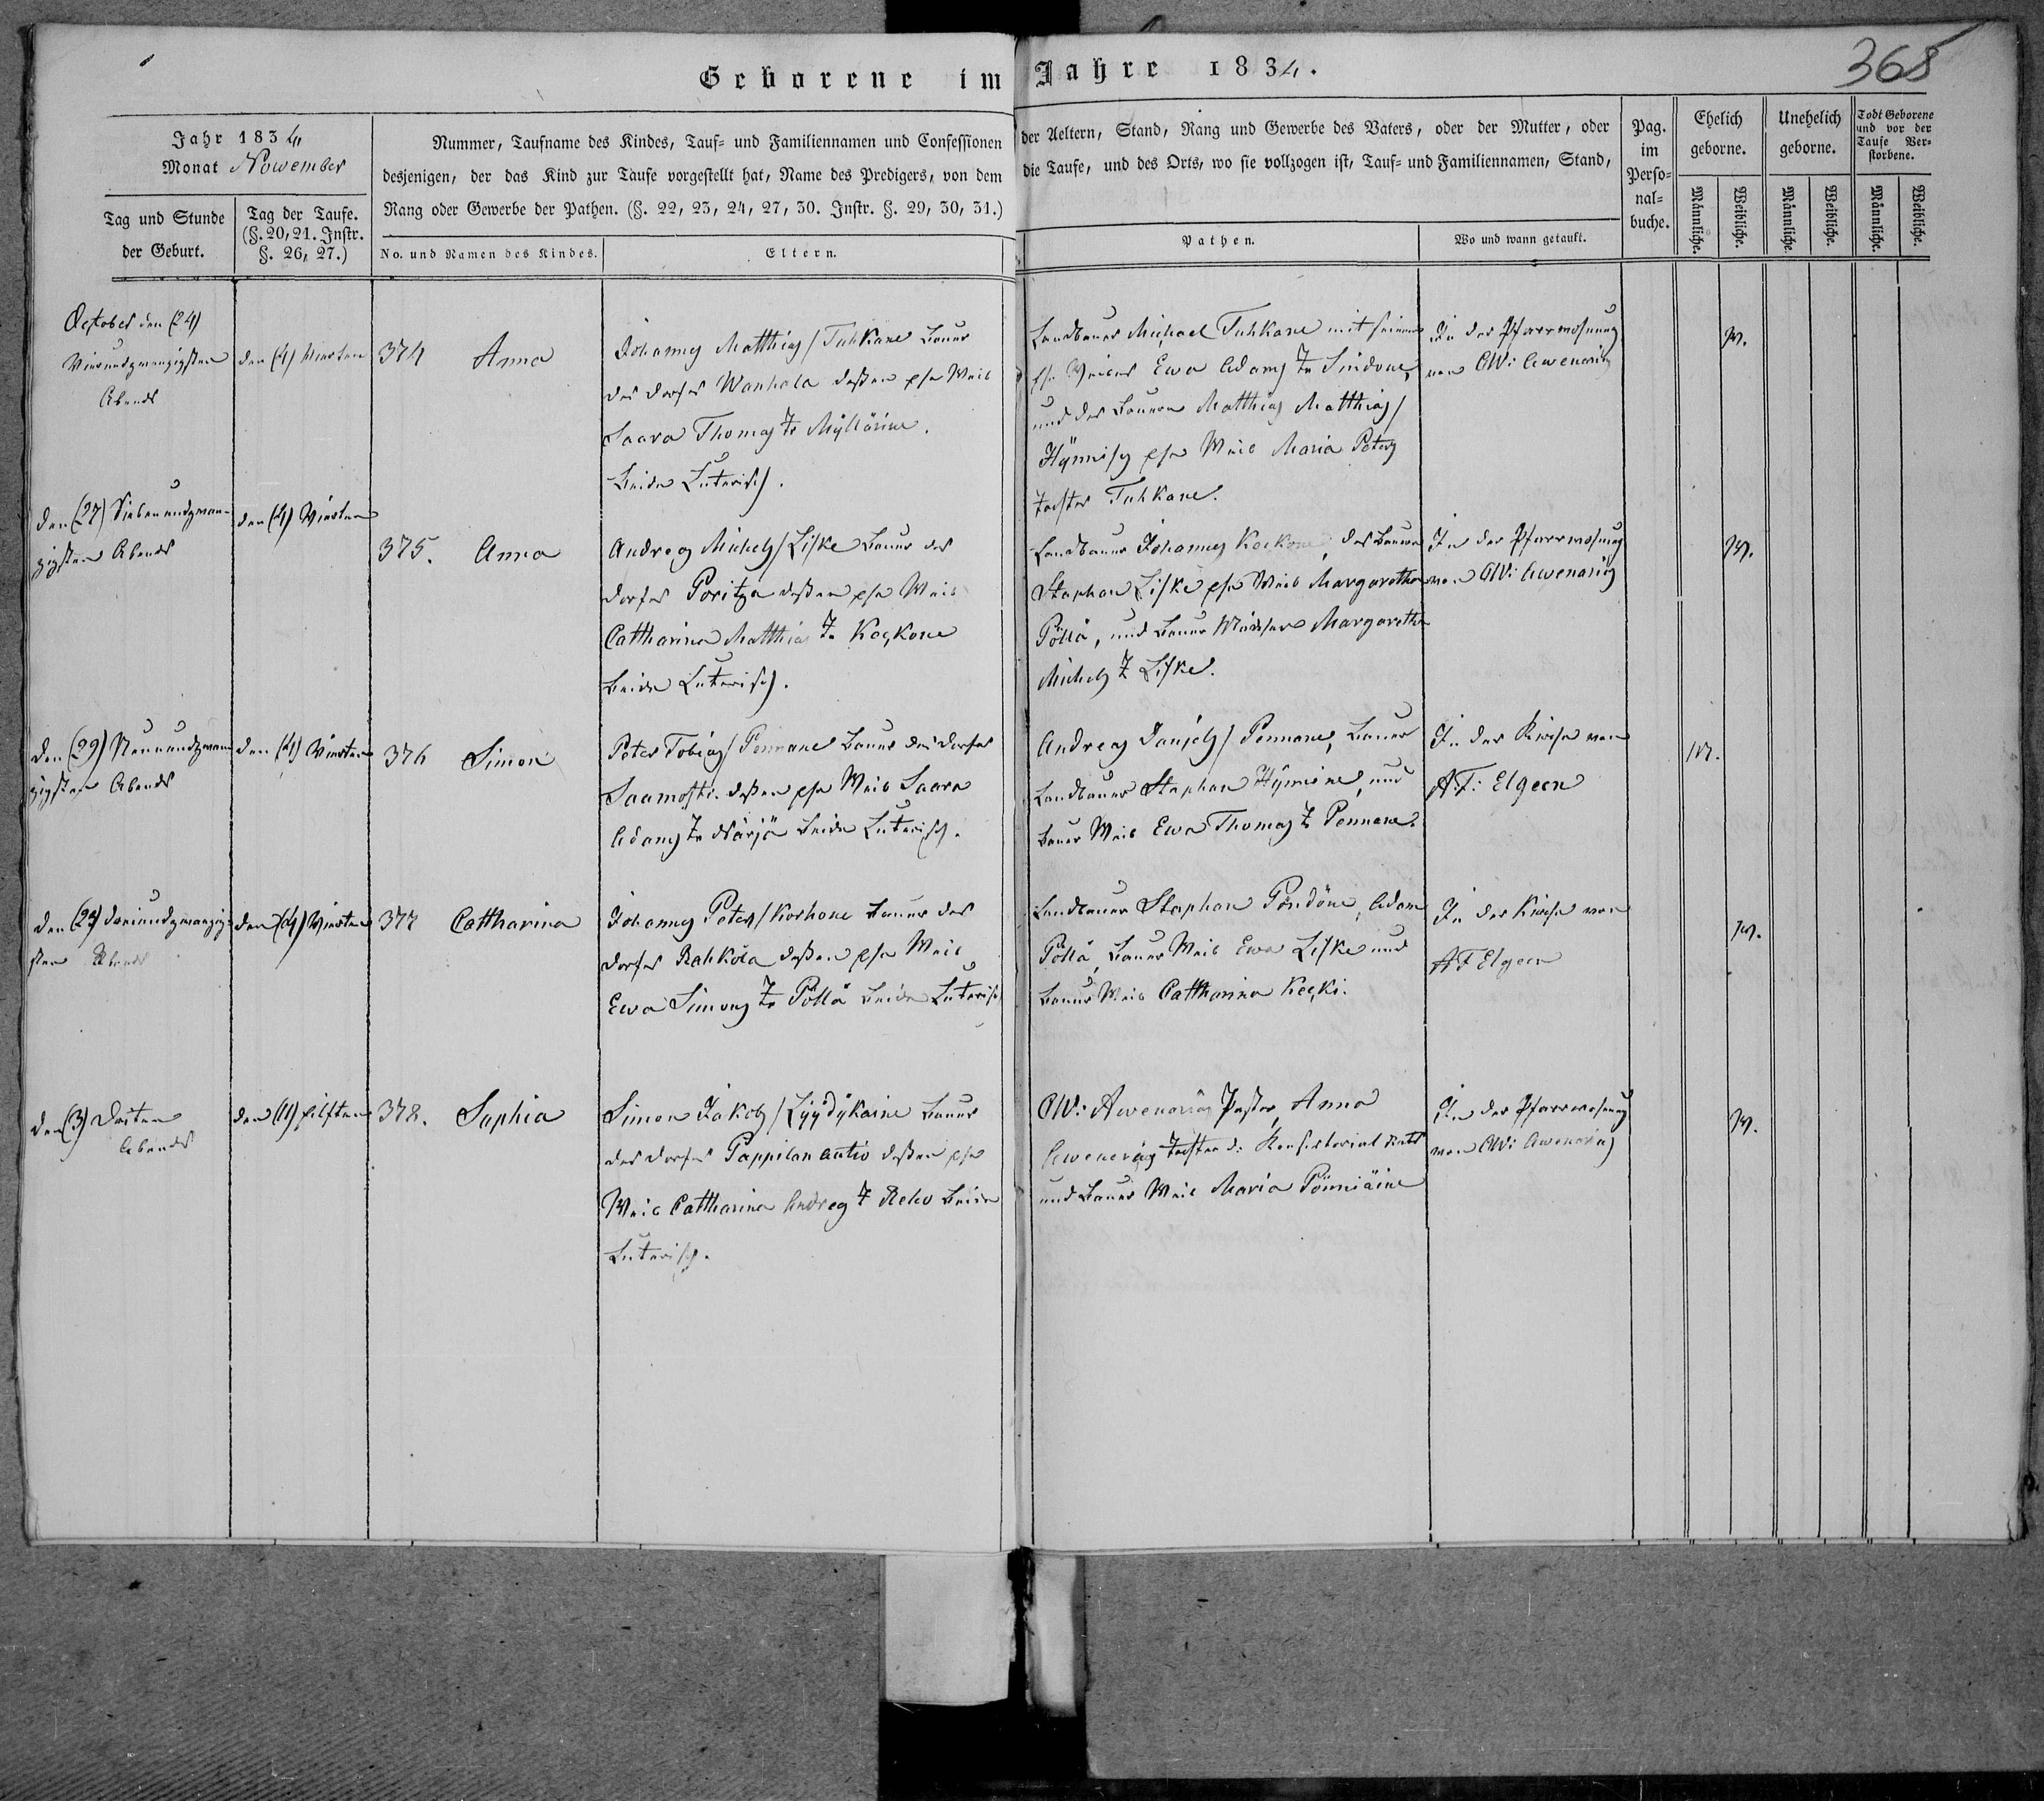 Geborene im Jahre 1834.
368
Jahr 1834
Monat Nowember
Nummer, Taufname des Kindes, Tauf- und Familiennamen und Confessionen der Aeltern, Stand, Rang und Gewerbe des Vaters, oder der Mutter, oder
desjenigen, der das Kind zur Taufe vorgestellt hat, Name des Predigers, von dem die Taufe, und des Orts, wo sie vollzogen ist, Tauf- und Familiennamen, Stand,
Rang oder Gewerbe der Pathen. (§. 22, 23, 24, 27, 30. Instr. §. 29, 30, 31.)
Tag und Stunde
der Geburt.
Tag der Taufe.
(§. 20, 21. Instr.
§. 26, 27.)
No. und Namen des Kindes.
Eltern.
Pathen.
Wo und wann getauft.
Pag.
im
Perso-
nal-
buche.
Ehelich
geborne.
Unehelich
geborne.
Todt Geborene
und vor der
Taufe Ver-
storbene.
Männliche.
Weibliche.
Männliche.
Weibliche.
Männliche.
Weibliche.
October den (24)
Vierundzwanzigsten
Abends
den (4) Vierten
374 Anna
Johannes Matthias Tuhkane Bauer
des Dorfes Wanhala deßen Weib
Saara Thomas Myllärine.
beide Luterisch.
Landbauer Michael Tuhkane mit seinem
Weibe Ewa Adams Sindone,
und des Bauern Matthias Matthias
Weib Maria Peters
Tochter Tuhkane.
In der Pfarrwohnung
von CWi Awenarius
W.
den (27) Siebenundzwan-
zigsten Abends
den (4) Vierten
375. Anna
Andreas Michels Liske Bauer des
Dorfes Poritza deßen Weib
Cattharina Matthias Koskone
beide Luterisch.
Landbauer Johannes Koskone, des Bauern
Stephan Liske Weib Margaretha
Pöllä, und Bauer Mädchen Margaretha
Michels Liske.
In der Pfarrwohnung
von CWi Awenarius
W.
den (29) Neunundzwan-
zigsten Abends
den (4) Vierten
376 Simon
Peter Tobias Pennane Bauer des Dorfes
deßen Weib Saara
Adams Närjä beide Luterisch.
Andreas Daniels Pennane, Bauer
Landbauer Stephan Hyninine, und
Bauer Weib Ewa Thomas Pennane.
In der Kirche von
A.F. Elgeen
M.
den Dreiundzwanzig-
sten Abends
den (4) Vierten
377 Cattharina
Johannes Peters Korhone Bauer des
Dorfes Rahkola deßen Weib
Ewa Simons Pöllä beide Luterisch
Landbauer Stephan Pöndöne, Adam
Pöllä, Bauer Weib Ewa Liske und
Bauer Weib Cattharina Keski.
In der Kirche von
AF Elgeen
W.
den (3) Dritten
Abends
den (11) Eilften
378. Sophia
Simon Jakobs Lyydikäine Bauer
des Dorfes Pappilan autio deßen
Weib Cattharina Andreas Reko beide
Luterisch.
CWi Awenarius Pastor, Anna
Awenarius Tochter d: Konsistorial Raths
und Bauer Weib Maria Pönniäine
In der Pfarrwohnung
von CWi Awenarius
W.